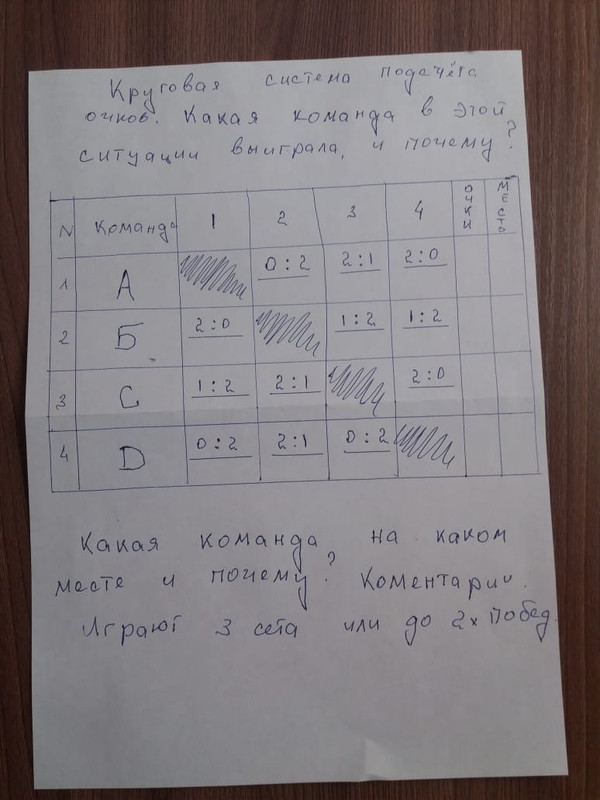 Круговая система подсчёта
очков. Какая команда в этой
ситуации выиграла, и почему?
N Команда 1 2 3 4 ОЧКИ МЕСТО
1 А 0:2 2:1 2:0
2 Б 2:0 1:2 1:2
3 С 1:2 2:1 2:0
4 D 0:2 2:1 0:2
Какая команда на каком
месте и почему? Коментарии.
Играют 3 сета или до 2х побед.